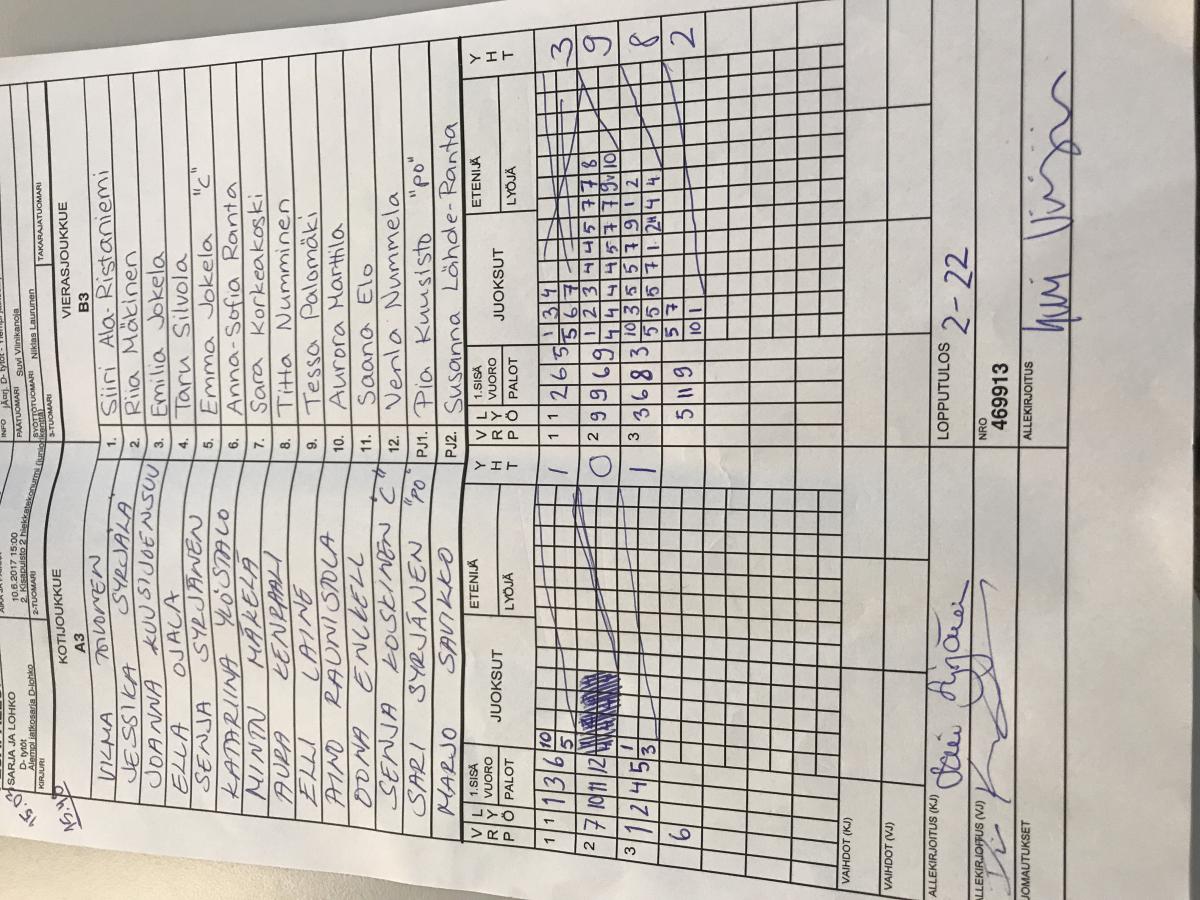 SARJA JA LOHKO
D- tytöt
Alempi jatkosarja D-lohko
KIRJURI
10.6.2017 15:00
2. Kisapuisto 2 hiekkatekonurmi (juniorikenttä)
2-TUOMARI
INFO
PÄÄTUOMARI Suvi Viinikanoja
SYÖTTÖTUOMARI Niklas Laurunen
3-TUOMARI
TAKARAJATUOMARI
KOTIJOUKKUE
A3
VILMA
JESSICA SYRJÄLÄ
JOANNA KUUSIVUENSUU
ELLA OJALA
SENJA SYRJÄNEN
KATARIINA YLÖSTALO
NINTU MÄKELÄ
AURA KENRAALI
ELLI LAINE
AINO RAUNISTOLA
OONA ENCKELL
SENJA KOSKINEN "C"
SARI SYRJÄNEN "PO"
MARJO SAVIKKO
VIERASJOUKKUE
B3
1. Siiri Ala-Ristaniemi
2. Riia Mäkinen
3. Emilia Jokela
4. Taru Silvola
5. Emma Jokela "C"
6. Anna-Sofia Ranta
7. Sara Korkeakoski
8. Titta Numminen
9. Tessa Palomäki
10. Aurora Marttila
11. Saana Elo
12. Venla Nummela
PJ1. Pia Kuusisto "PO"
PJ2. Susanna Lähde-Ranta
VRP LYÖ 1.SISÄ VUORO PALOT JUOKSUT ETENIJÄ LYÖJÄ YHT
1 1 1 3 6 10 1
5
2 7 10 11 12 0
3 1 2 4 5 1 1
3
6
VRP LYÖ 1.SISÄ VUORO PALOT JUOKSUT ETENIJÄ LYÖJÄ YHT
1 1 2 6 5 1 3 4 3
5 6 7
2 9 9 6 9 1 2 3 4 4 5 7 7 8 9
4 4 4 4 5 7 7 9v 10
3 3 6 8 3 10 3 5 5 7 9 1 2 8
5 5 5 7 1 2H 4 4
5 11 9 5 7 2
10 1
VAIHDOT (KJ)
VAIHDOT (VJ)
ALLEKIRJOITUS (KJ)
LOPPUTULOS 2-22
ALLEKIRJOITUS (VJ)
NRO
469913
HUOMAUTUKSET
ALLEKIRJOITUS